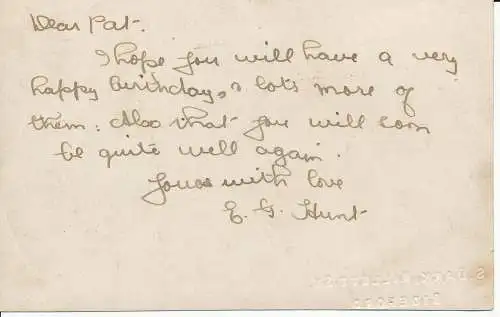 Dear Pat.
I hope you will have a very
happy birthday, & lots more of
them. Also that you will soon
be quite well again.
Yours with love
E. G. Hunt